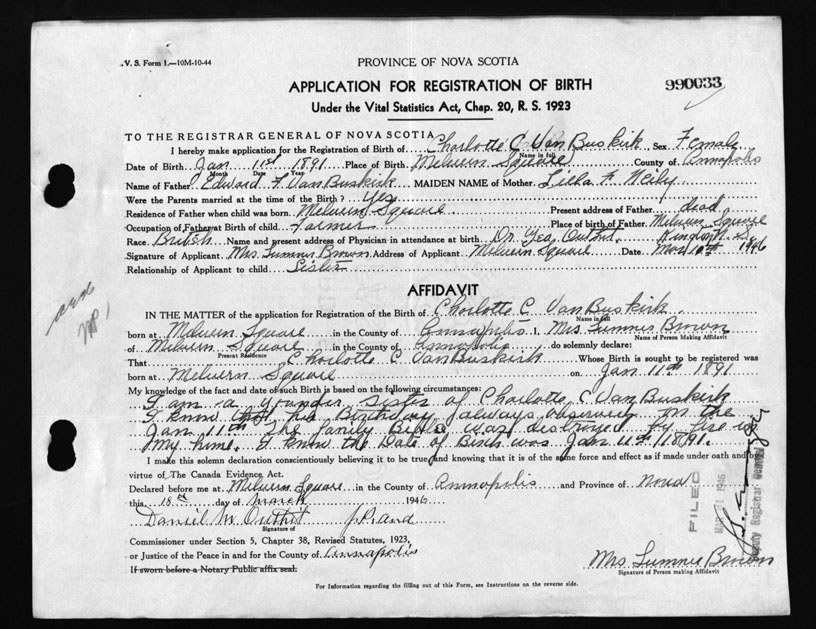 V. S. Form 1.—10M-10-44
PROVINCE OF NOVA SCOTIA
APPLICATION FOR REGISTRATION OF BIRTH
990033
Under the Vital Statistics Act, Chap. 20, R. S. 1923
TO THE REGISTRAR GENERAL OF NOVA SCOTIA
I hereby make application for the Registration of Birth of Charlotte C VanBuskirk Sex Female
Name in full
Date of Birth Jan 11st 1891 Place of Birth Melvern Square County of Annapolis
Month Date Year
Name of Father Edward F VanBuskirk MAIDEN NAME of Mother Lilla F Neily
Were the Parents married at the time of the Birth? Yes
Residence of Father when child was born Melvern Square. Present address of Father dead
Occupation of Father at Birth of child Farmer Place of birth of Father Melvern Square
Race British Name and present address of Physician in attendance at birth. Dr Geo Outhit. Kingston N. S.
Signature of Applicant Mrs Sumner Brown Address of Applicant Melvern Square Date 1946
Relationship of Applicant to child Sister
AFFIDAVIT
IN THE MATTER of the application for Registration of the Birth of Charlotte C VanBuskirk
Name in full
born at Melvern Square in the County of Annapolis I, Mrs Sumner Brown
Name of Person Making Affidavit
of Melvern Square in the County of Annapolis do solemnly declare:
Present Residence
That Charlotte C VanBuskirk Whose Birth is sought to be registered was
born at Melvern Square on Jan 11th 1891
My knowledge of the fact and date of such Birth is based on the following circumstances:
I am a younger sister of Charlotte C VanBuskirk
I know her Birthday always observed on the
Jan 11th The family Bible was destroyed by fire in
My home. I know the Date of Birth was Jan 11th 1891.
I make this solemn declaration conscientiously believing it to be true and knowing that it is of the same force and effect as if made under oath and by
virtue of The Canada Evidence Act.
Declared before me at Melvern Square in the County of Annapolis and Province of Nova
this 18th day of March 1946
Daniel M Outhit J.P. and
Signature of
Commissioner under Section 5, Chapter 38, Revised Statutes, 1923,
or Justice of the Peace in and for the County of Annapolis
If sworn before a Notary Public affix seal.
Mrs Sumner Brown
Signature of Person making Affidavit
FILED
1946
Deputy Registrar General
For Information regarding the filling out of this Form, see Instructions on the reverse side.